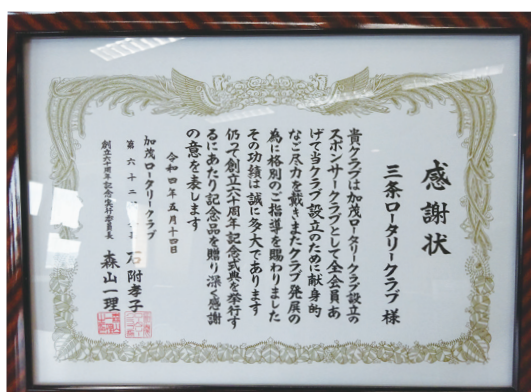 感謝状
三条ロータリークラブ 様
貴クラブは加茂ロータリークラブ設立の
スポンサークラブとして全会員あ
げて当クラブ設立のために献身的
なご尽力を戴きまたクラブ発展の
為に格別のご指導を賜わりました
その功績は誠に多大であります
仍って創立六十周年記念式典を挙行す
るにあたり記念品を贈り深く感謝
の意を表します
令和四年五月十四日
加茂ロータリークラブ
第六十二 石附孝子
創立六十周年記念実行委員長 森山一理